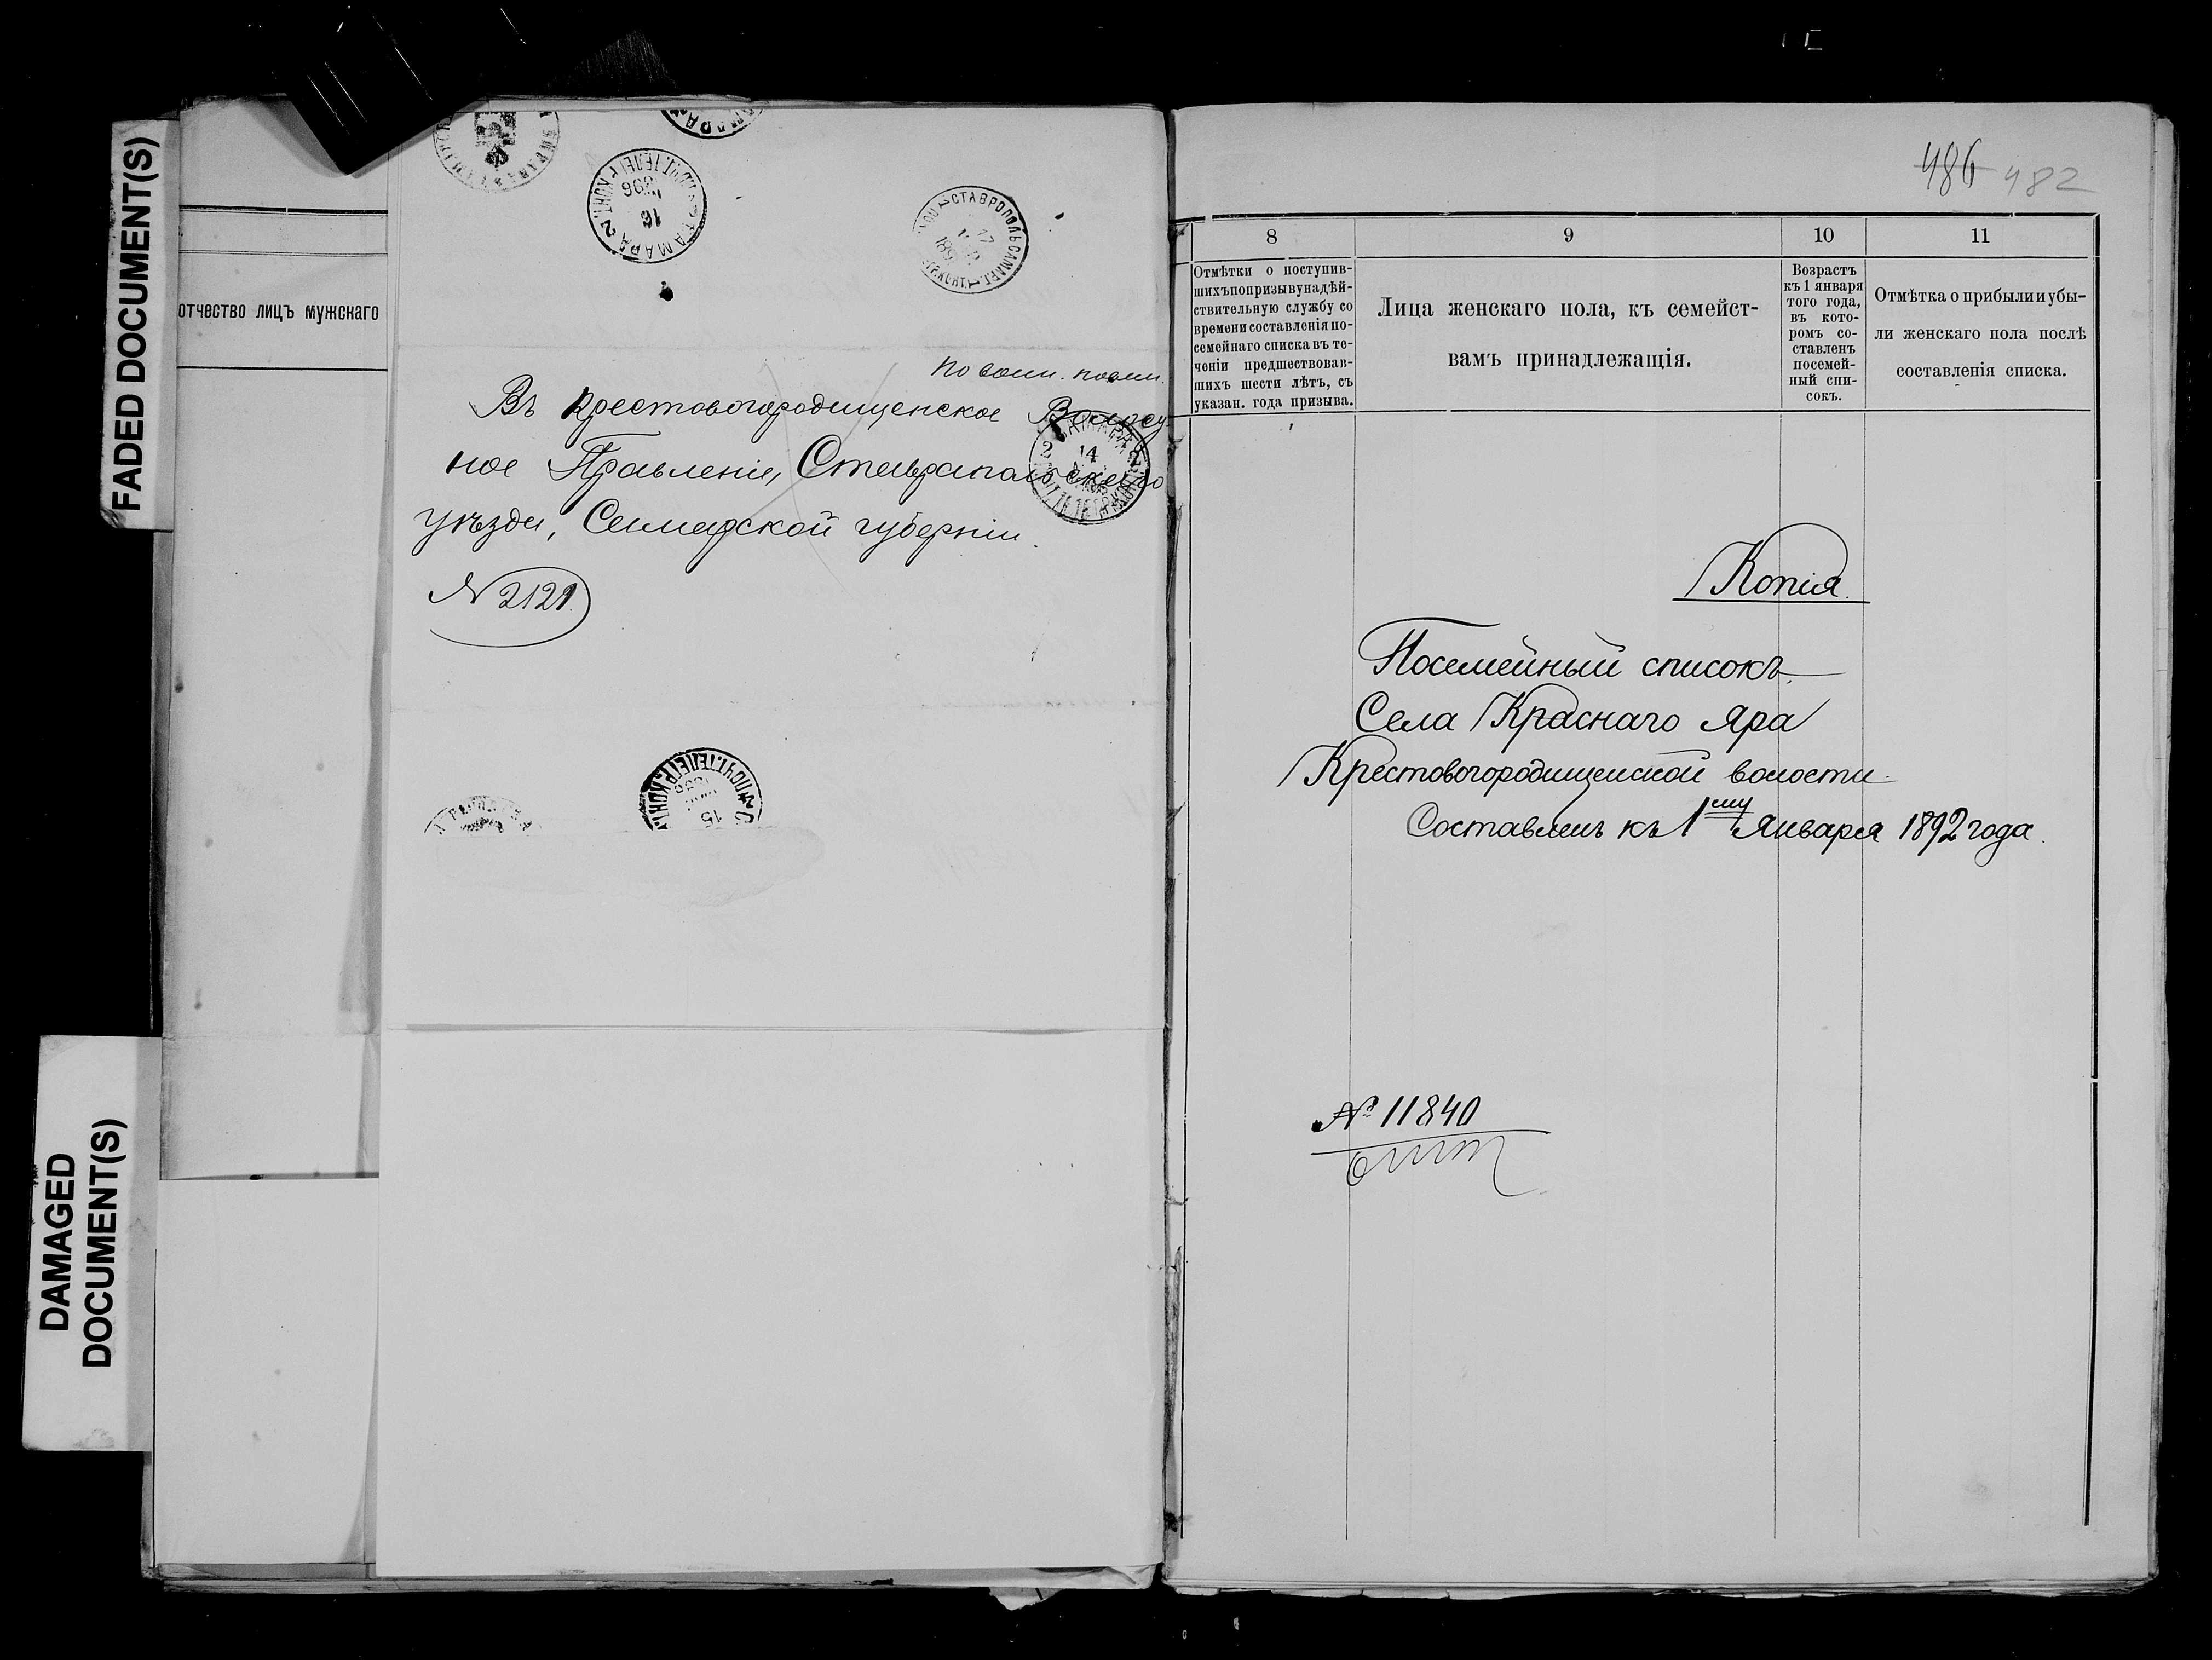 FADED DOCUMENT(S)
DAMAGED
DOCUMENT(S)
отчество лицъ мужскаго
САМАРА 2
ПОЧТ. ТЕЛЕГР. КОНТ.
16
СТАВРОПОЛЬ САМАР. Г.
17
По воин. повин.
Въ Крестовогородищенское Волост
ное Правленіе, Ставропольскаго
уѣзда, Самарской губерніи.
14
№ 2121.
ПОЧТ. ТЕЛЕГР. КОНТ.
15
486 482
8
9
10
11
Отмѣтки о поступив-
шихъ по призыву на дѣй-
ствительную службу со
времени составленія по-
семейнаго списка въ те-
ченіи предшествовав-
шихъ шести лѣтъ, съ
указан. года призыва.
Лица женскаго пола, къ семейст-
вамъ принадлежащія.
Возрастъ
къ 1 января
того года,
въ кото-
ромъ со-
ставленъ
посемей-
ный спи-
сокъ.
Отмѣтка о прибыли и убы-
ли женскаго пола послѣ
составленія списка.
Копія.
Посемейный списокъ.
Села Краснаго Яра
Крестовогородищенской волости
Составленъ къ 1му Января 1892 года.
№ 11840